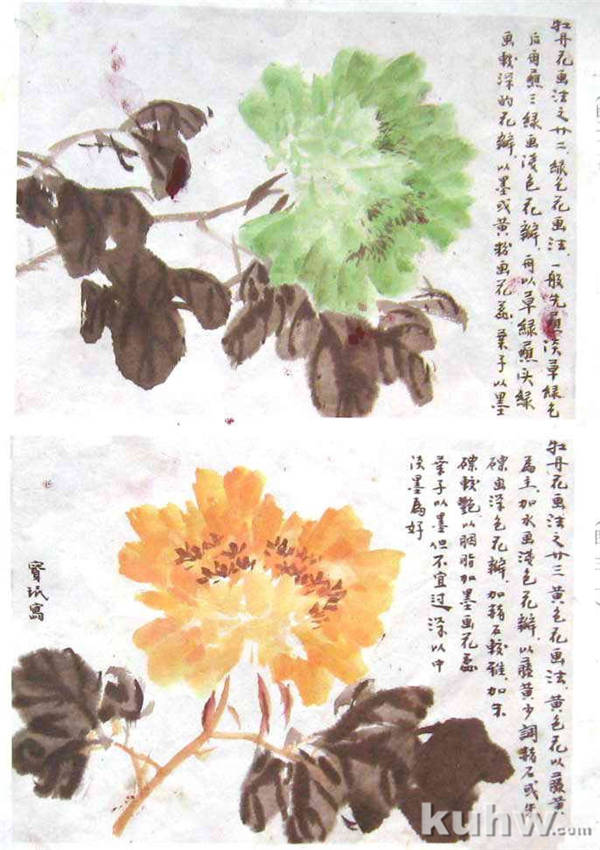 牡丹花画法之廿二，绿色花画法，一般先蘸淡草绿色
后角蘸三绿画浅色花瓣，再以草绿蘸头绿
画较深的花瓣，以墨或黄粉画花蕊，叶子以墨
牡丹花画法之廿三 黄色花画法，黄色花以藤黄
为主，加水画浅色花瓣，以藤黄少调赭石或朱
磦画深色花瓣，加赭石较雅，加朱
磦较艳，以胭脂加墨画花蕊
叶子以墨但不宜过深以中
淡墨为好
贤珉写
kuhw.com